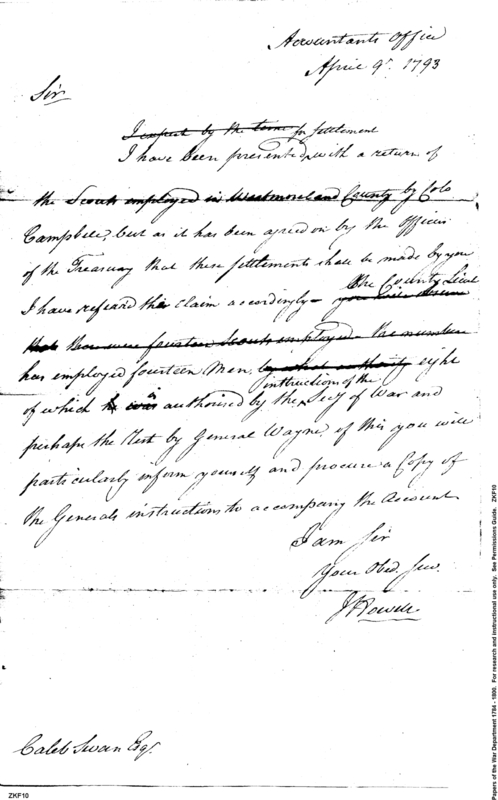 Accountants Office
April 9th 1793
Sir
I expect by the
for settlement
I have been presented with a return of
the Scouts employed in Westmoreland County by Colo
Campbell, but as it has been agreed on by the Officers
of the Treasury that these settlements shall be made by you
the County Lieut
I have referred the claim accordingly – you will observe
that there were fourteen Scouts employed – the number
has employed fourteen Men, by what authority eight
instructions of the
of which was authorised by the Secy of War and
perhaps the Rest by General Wayne, of this you will
particularly inform yourself and procure a Copy of
the Generals instructions to accompany the Account
I am Sir
Your Obed. Serv.
J Howell
Caleb Swan Esqr.
ZKF10
Papers of the War Department 1784 - 1800. For research and instructional use only. See Permissions Guide. ZKF10